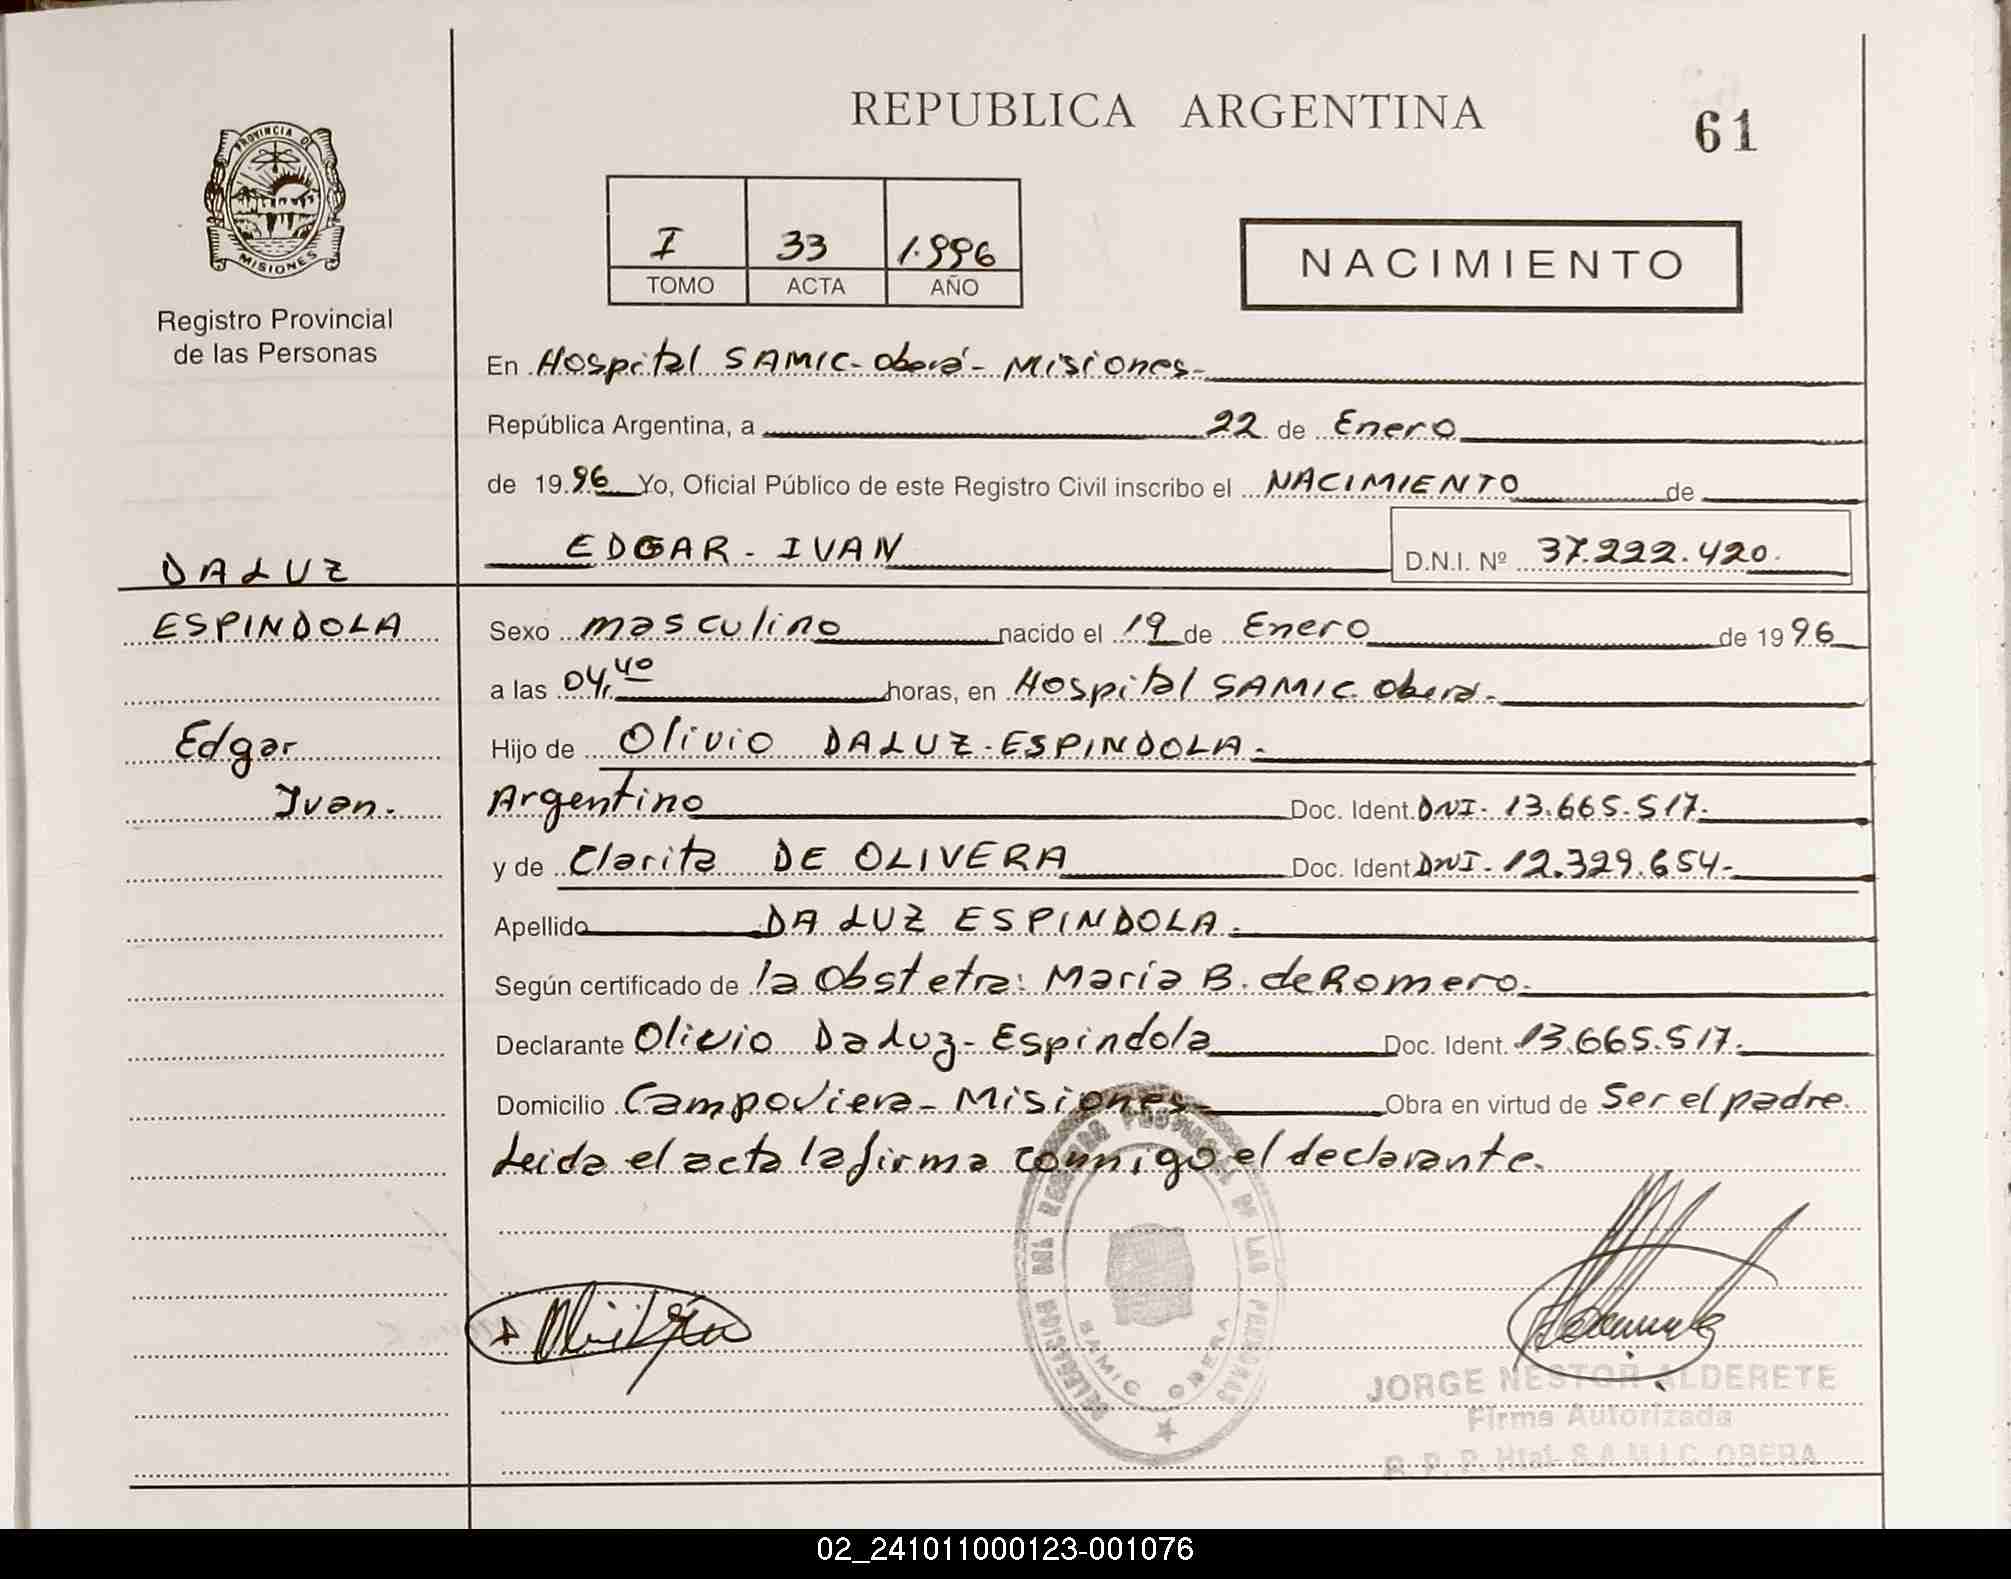 REPUBLICA ARGENTINA
61
PROVINCIA DE
MISIONES
Registro Provincial
de las Personas
I 33 1.996
TOMO ACTA AÑO
NACIMIENTO
En Hospital SAMIC - Oberá - Misiones -
República Argentina, a 22 de Enero
de 1996 Yo, Oficial Público de este Registro Civil inscribo el NACIMIENTO de
EDGAR - IVAN D.N.I. Nº 37.222.420.
DALUZ
ESPINDOLA
Edgar
Ivan.-
Sexo masculino nacido el 19 de Enero de 1996
a las 04,40 horas, en Hospital SAMIC. Oberá.-
Hijo de Olivio DALUZ - ESPINDOLA.-
Argentino Doc. Ident. DNI. 13.665.517.-
y de Clarita DE OLIVERA Doc. Ident DNI. 12.329.654.-
Apellido DA LUZ ESPINDOLA.-
Según certificado de la Obstetra: Maria B. de Romero.-
Declarante Olivio Daluz - Espindola Doc. Ident. 13.665.517.-
Domicilio Campo Viera - Misiones - Obra en virtud de Ser el padre.
Leida el acta la firma conmigo el declarante.
DELEGACION DEL REGISTRO PROVINCIAL DE LAS PERSONAS
SAMIC OBERA
JORGE NESTOR ALDERETE
Firma Autorizada
R. P. P. Htal. S.A.M.I.C. OBERA
02_241011000123-001076